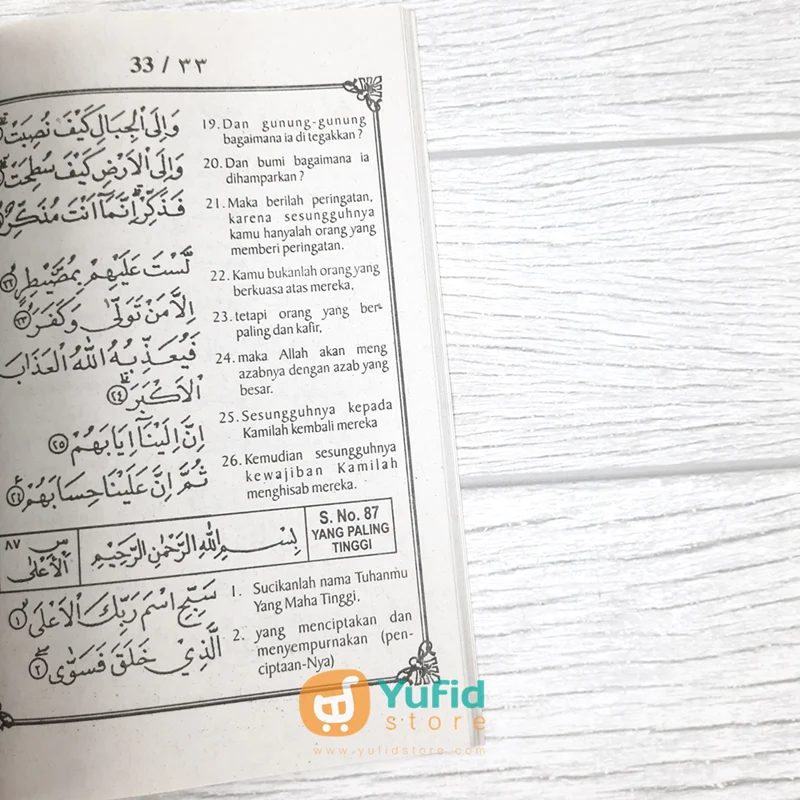 33 / ٣٣
وَاِلَى الْجِبَالِ كَيْفَ نُصِبَتْ
وَاِلَى الْاَرْضِ كَيْفَ سُطِحَتْ
فَذَكِّرْ اِنَّمَآ اَنْتَ مُذَكِّرٌ
لَسْتَ عَلَيْهِمْ بِمُصَيْطِرٍ ٢٢
اِلَّا مَنْ تَوَلّٰى وَكَفَرَ ٢٣
فَيُعَذِّبُهُ اللّٰهُ الْعَذَابَ
الْاَكْبَرَ ٢٤
اِنَّ اِلَيْنَآ اِيَابَهُمْ ٢٥
ثُمَّ اِنَّ عَلَيْنَا حِسَابَهُمْ ٢٦
19. Dan gunung-gunung
bagaimana ia di tegakkan ?
20. Dan bumi bagaimana ia
dihamparkan ?
21. Maka berilah peringatan,
karena sesungguhnya
kamu hanyalah orang yang
memberi peringatan.
22. Kamu bukanlah orang yang
berkuasa atas mereka,
23. tetapi orang yang ber-
paling dan kafir,
24. maka Allah akan meng
azabnya dengan azab yang
besar.
25. Sesungguhnya kepada
Kamilah kembali mereka
26. Kemudian sesungguhnya
kewajiban Kamilah
menghisab mereka.
س ٨٧
الْاَعْلٰى
بِسْمِ اللّٰهِ الرَّحْمٰنِ الرَّحِيْمِ
S. No. 87
YANG PALING
TINGGI
سَبِّحِ اسْمَ رَبِّكَ الْاَعْلَى ١
الَّذِيْ خَلَقَ فَسَوّٰى ٢
1. Sucikanlah nama Tuhanmu
Yang Maha Tinggi,
2. yang menciptakan dan
menyempurnakan (pen-
ciptaan-Nya)
YuFid
store
www.yufidstore.com